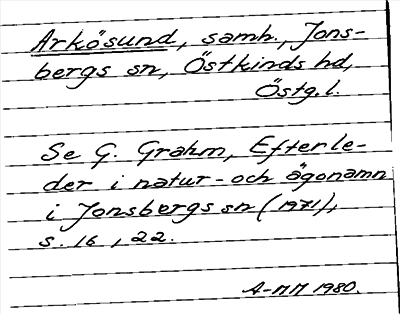 Arkösund, samh., Jons-
bergs sn, Östkinds hd,
Östg.l.
Se G. Grahm, Efterle-
der i natur- och ägonamn
i Jonsbergs sn (1971),
s. 16, 22.
A-MM 1980.